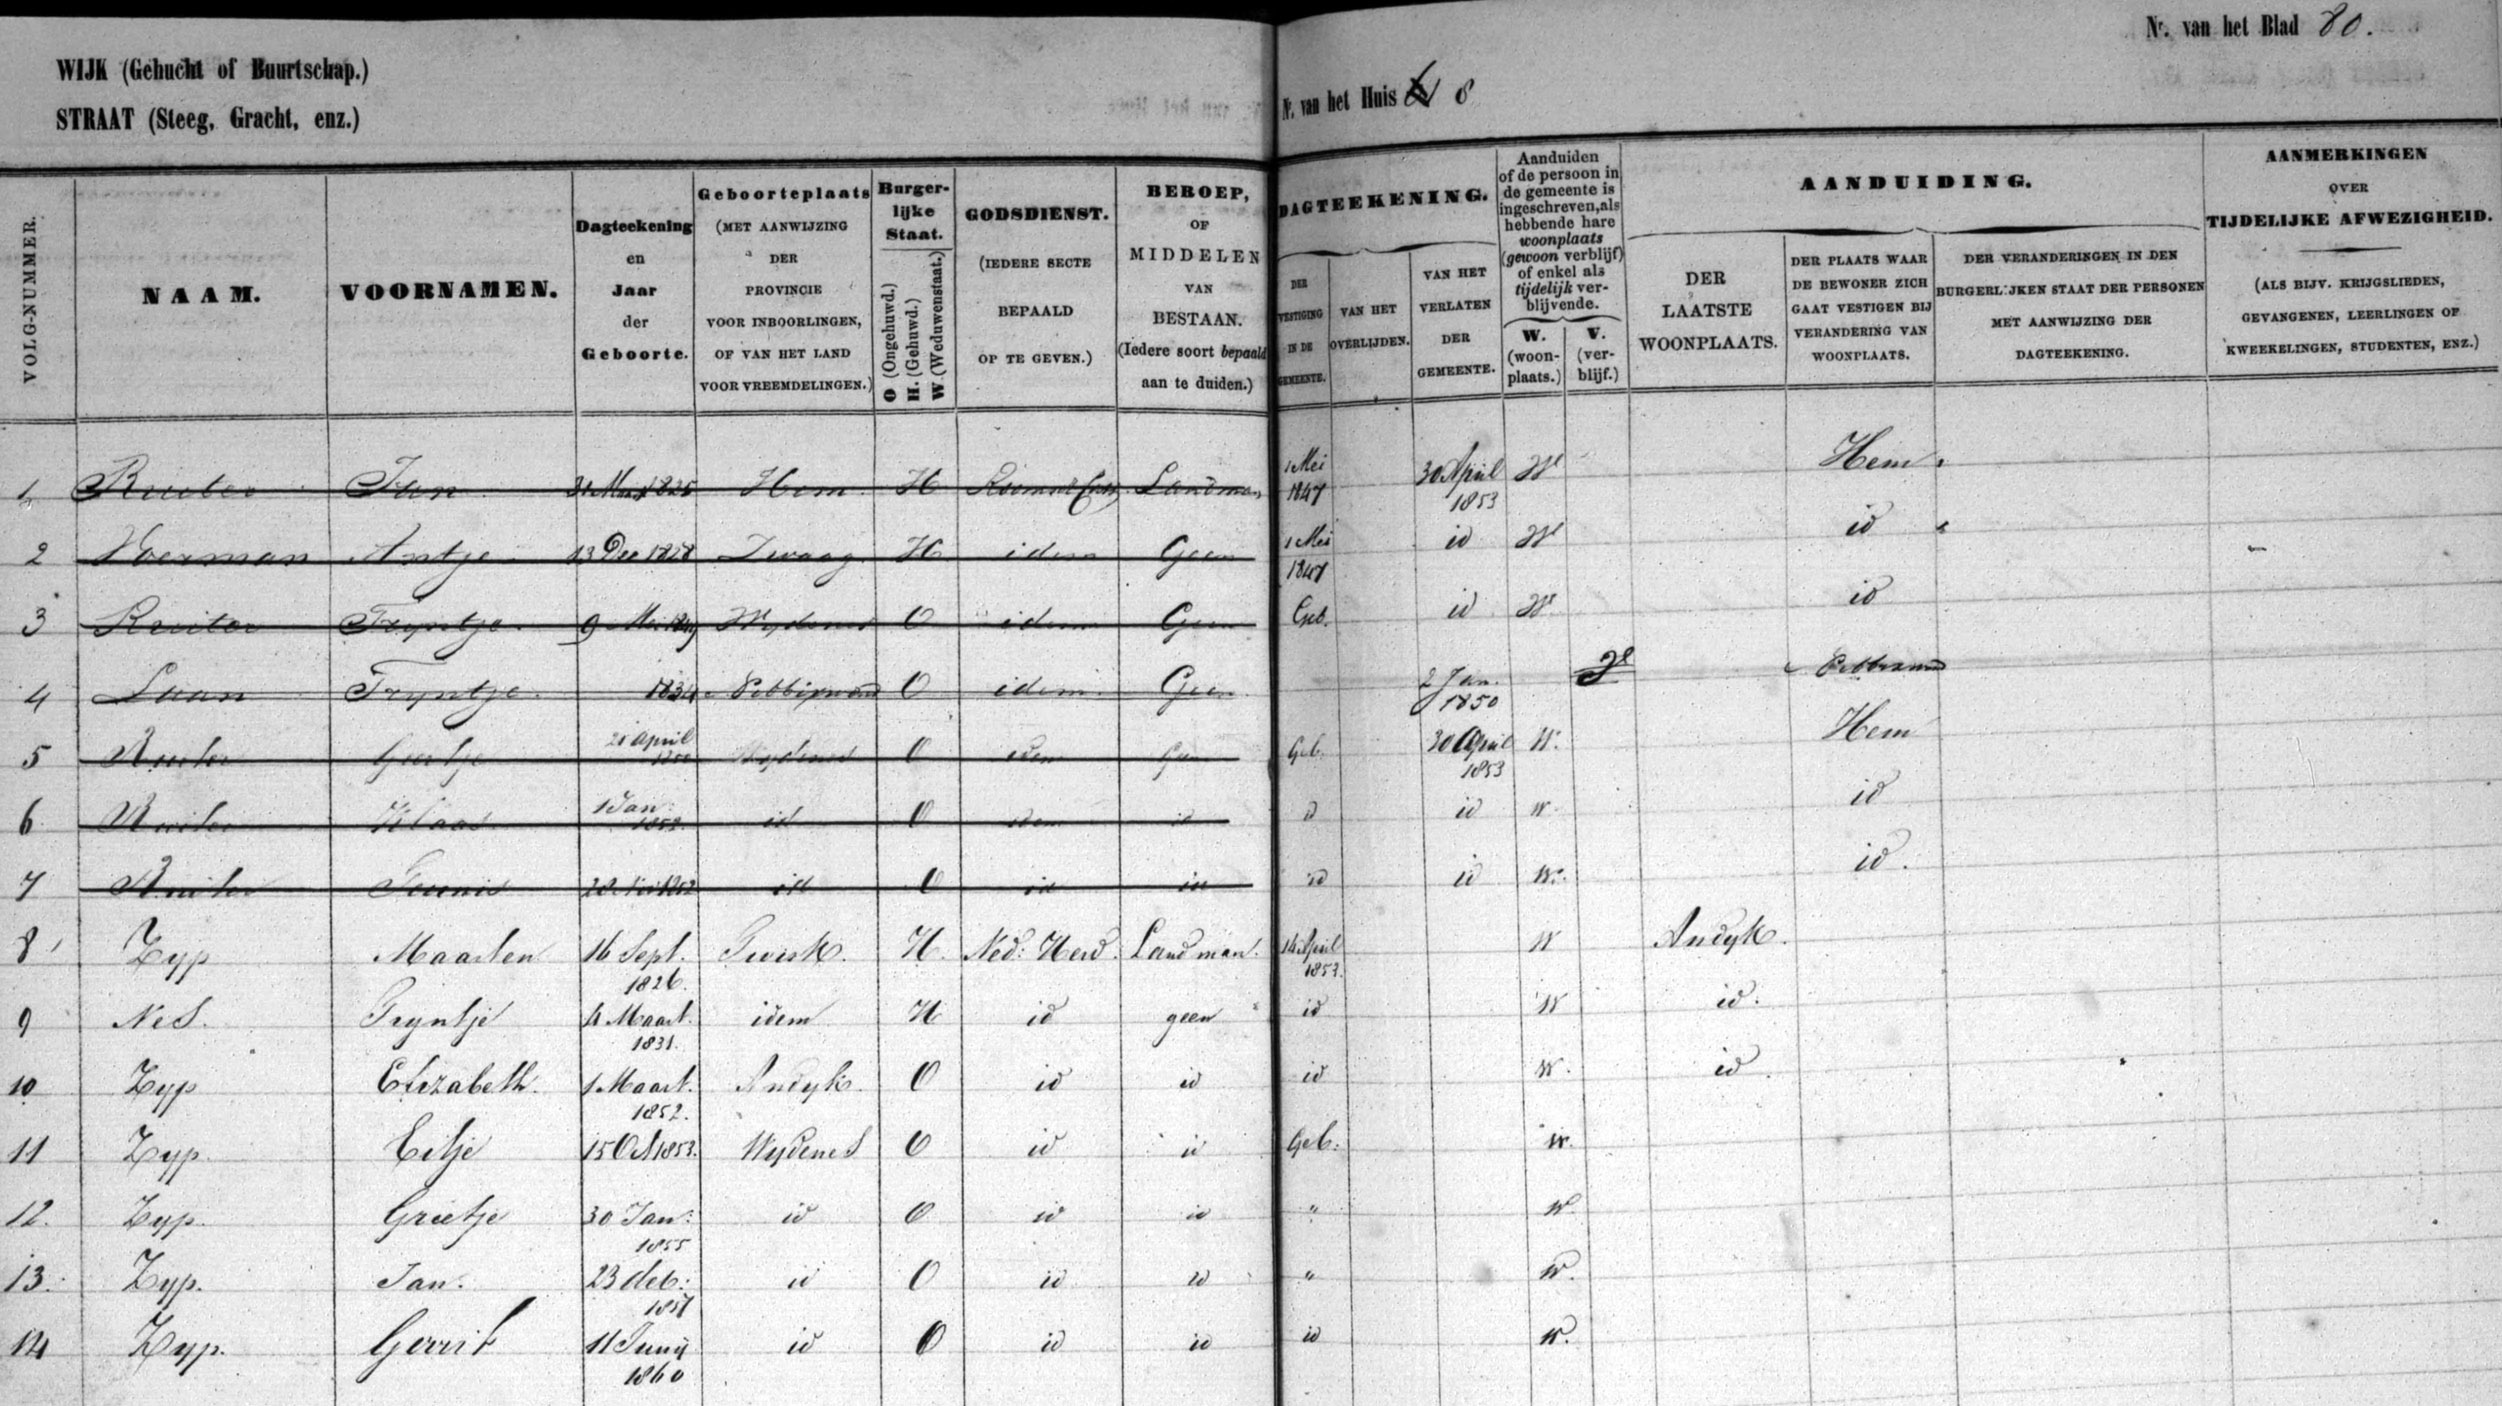 Nr. van het Blad 80.
WIJK (Gehucht of Buurtschap.)
STRAAT (Steeg, Gracht, enz.)
Nr. van het Huis 8
VOLG-NUMMER.
NAAM.
VOORNAMEN.
Dagteekening
en
Jaar
der
Geboorte.
Geboorteplaats
(MET AANWIJZING
DER
PROVINCIE
VOOR INBOORLINGEN,
OF VAN HET LAND
VOOR VREEMDELINGEN.)
Burger-
lijke
Staat.
O (Ongehuwd.)
H. (Gehuwd.)
W. (Weduwenstaat.)
GODSDIENST.
(IEDERE SECTE
BEPAALD
OP TE GEVEN.)
BEROEP,
OF
MIDDELEN
VAN
BESTAAN.
(Iedere soort bepaald
aan te duiden.)
DAGTEEKENING.
DER
VESTIGING
IN DE
GEMEENTE.
VAN HET
OVERLIJDEN.
VAN HET
VERLATEN
DER
GEMEENTE.
Aanduiden
of de persoon in
de gemeente is
ingeschreven, als
hebbende hare
woonplaats
(gewoon verblijf)
of enkel als
tijdelijk ver-
blijvende.
W.
(woon-
plaats.)
V.
(ver-
blijf.)
AANDUIDING.
DER
LAATSTE
WOONPLAATS.
DER PLAATS WAAR
DE BEWONER ZICH
GAAT VESTIGEN BIJ
VERANDERING VAN
WOONPLAATS.
DER VERANDERINGEN IN DEN
BURGERLIJKEN STAAT DER PERSONEN
MET AANWIJZING DER
DAGTEEKENING.
AANMERKINGEN
OVER
TIJDELIJKE AFWEZIGHEID.
(ALS BIJV. KRIJGSLIEDEN,
GEVANGENEN, LEERLINGEN OF
KWEEKELINGEN, STUDENTEN, ENZ.)
1 Ruiter Jan 1825 Hem H Landman 1 Mei 1847 30 April 1853 W Hem
2 Voerman Antje 13 Dec 1828 Zwaag H idem Geen 1 Mei 1847 id W id
3 Ruiter Tryntje 9 Wydenes O idem Geen Geb. id W id
4 Laan Tryntje 1834 O idem Geen 2 Jan. 1850
5 Ruiter Geertje 21 April Wydenes O idem Geen Geb. 30 April 1853 W. Hem
6 Ruiter Klaas 1 Jan: 1852 id O idem id id id W. id
7 Ruiter Teunis 1852 id O id id id id W. id.
8 Zyp Maarten 16 Sept. 1826. Twisk. H. Ned: Herv. Landman. 14 April 1853. W Andyk.
9 Nes. Tryntje 4 Maart. 1831. idem H id geen id W id.
10 Zyp Elizabeth. 1 Maart. 1852. Andyk. O id id id W. id
11 Zyp. Eitje 15 Oct 1853. Wydenes O id id Geb: W.
12. Zyp. Grietje 30 Jan: 1855 id O id id " W
13. Zyp. Jan. 23 1857 id O id id " W.
14 Zyp. Gerrit 11 Junij 1860 id O id id id W.